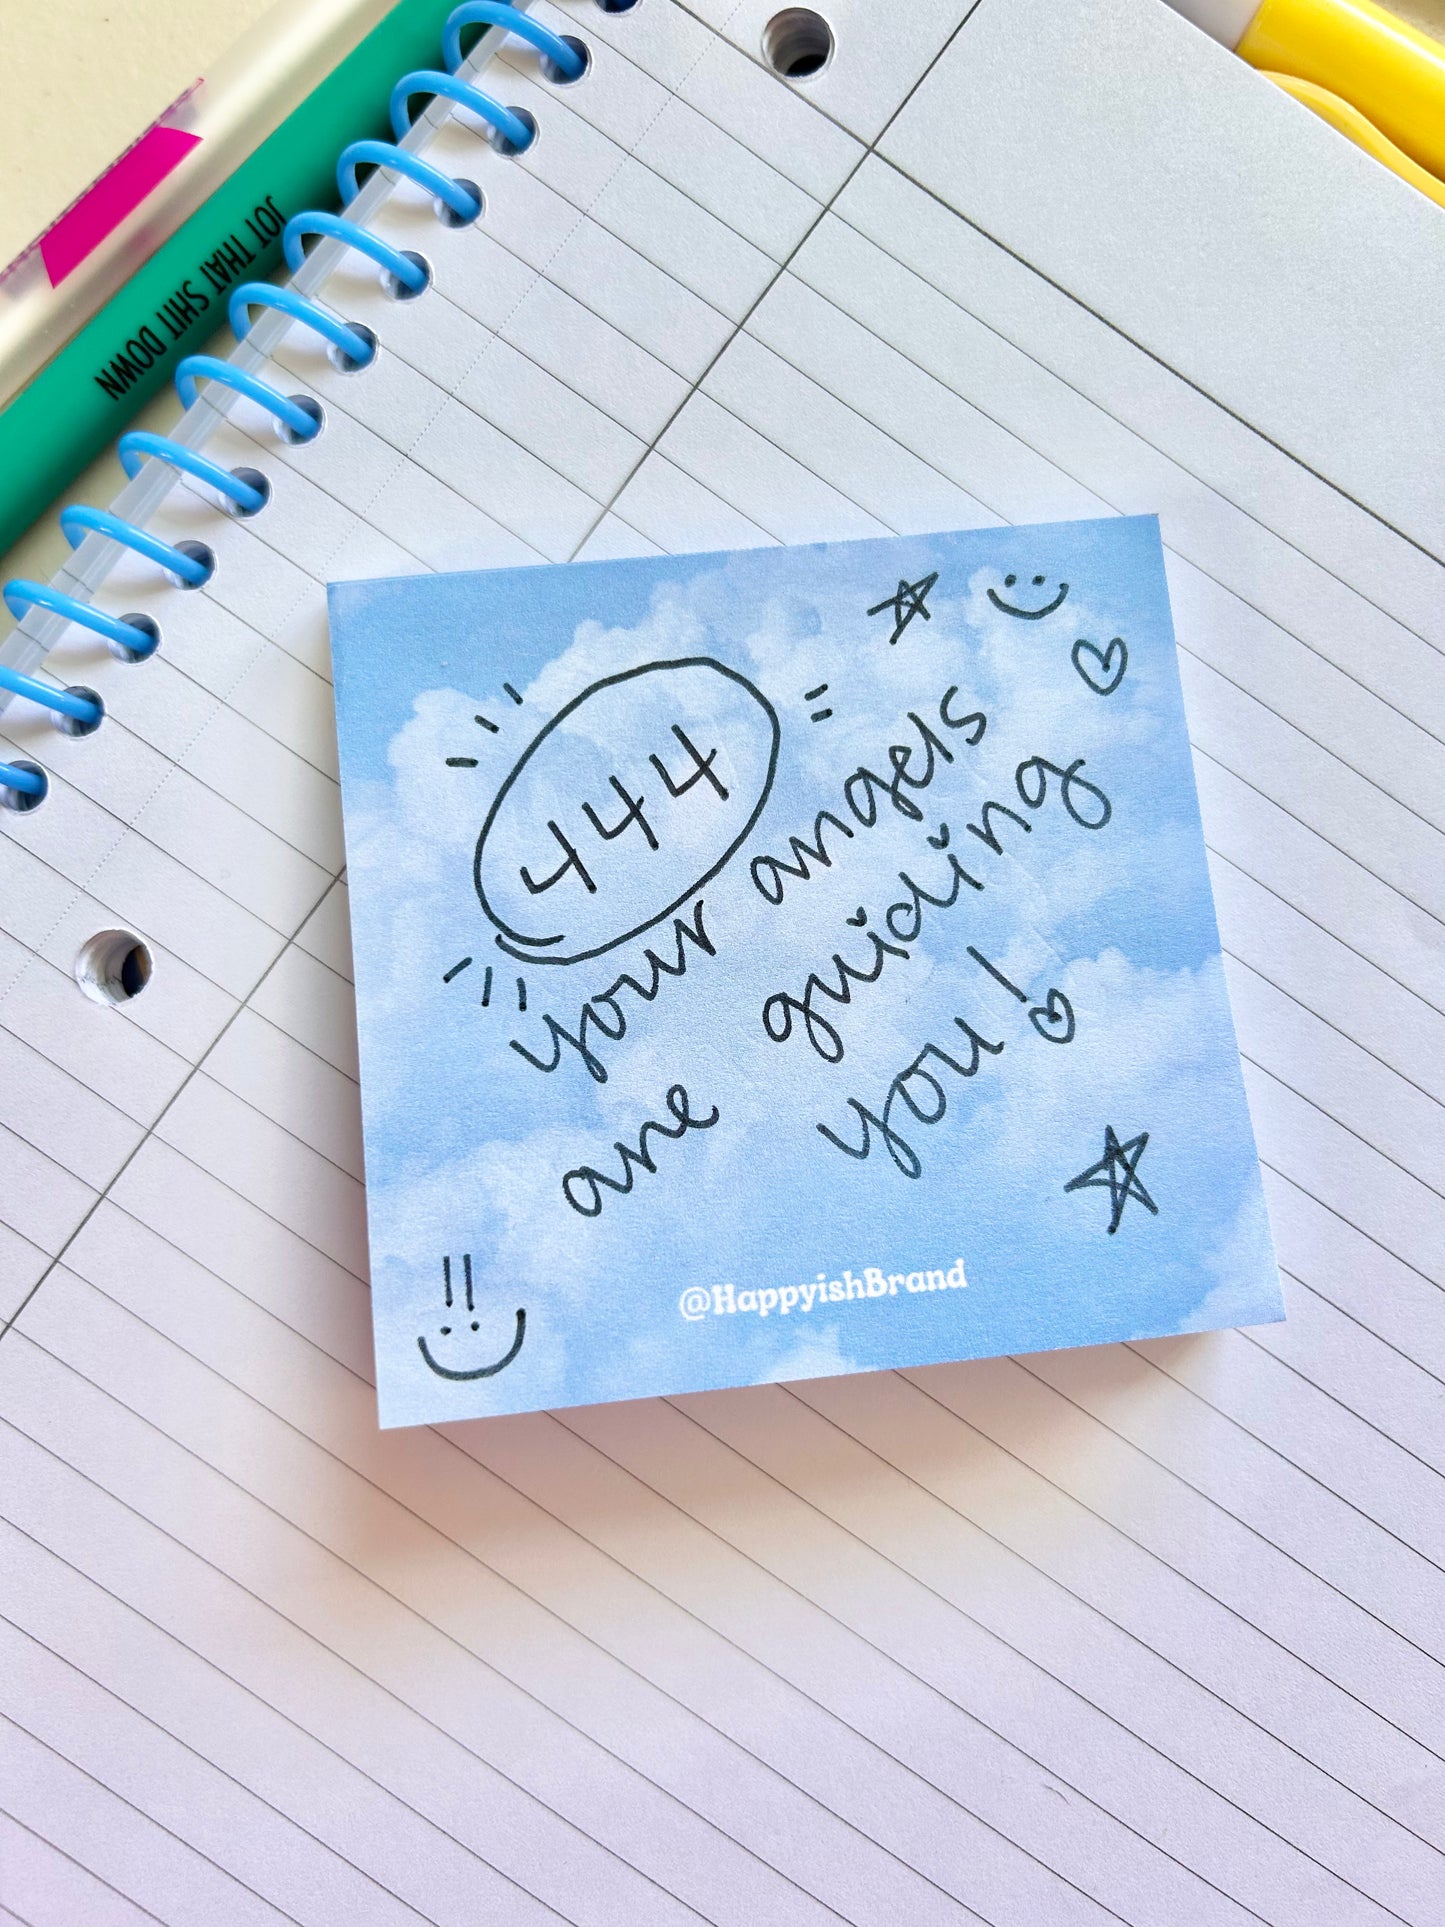 JOT THAT SHIT DOWN
444
your angels
are guiding
you!
@HappyishBrand